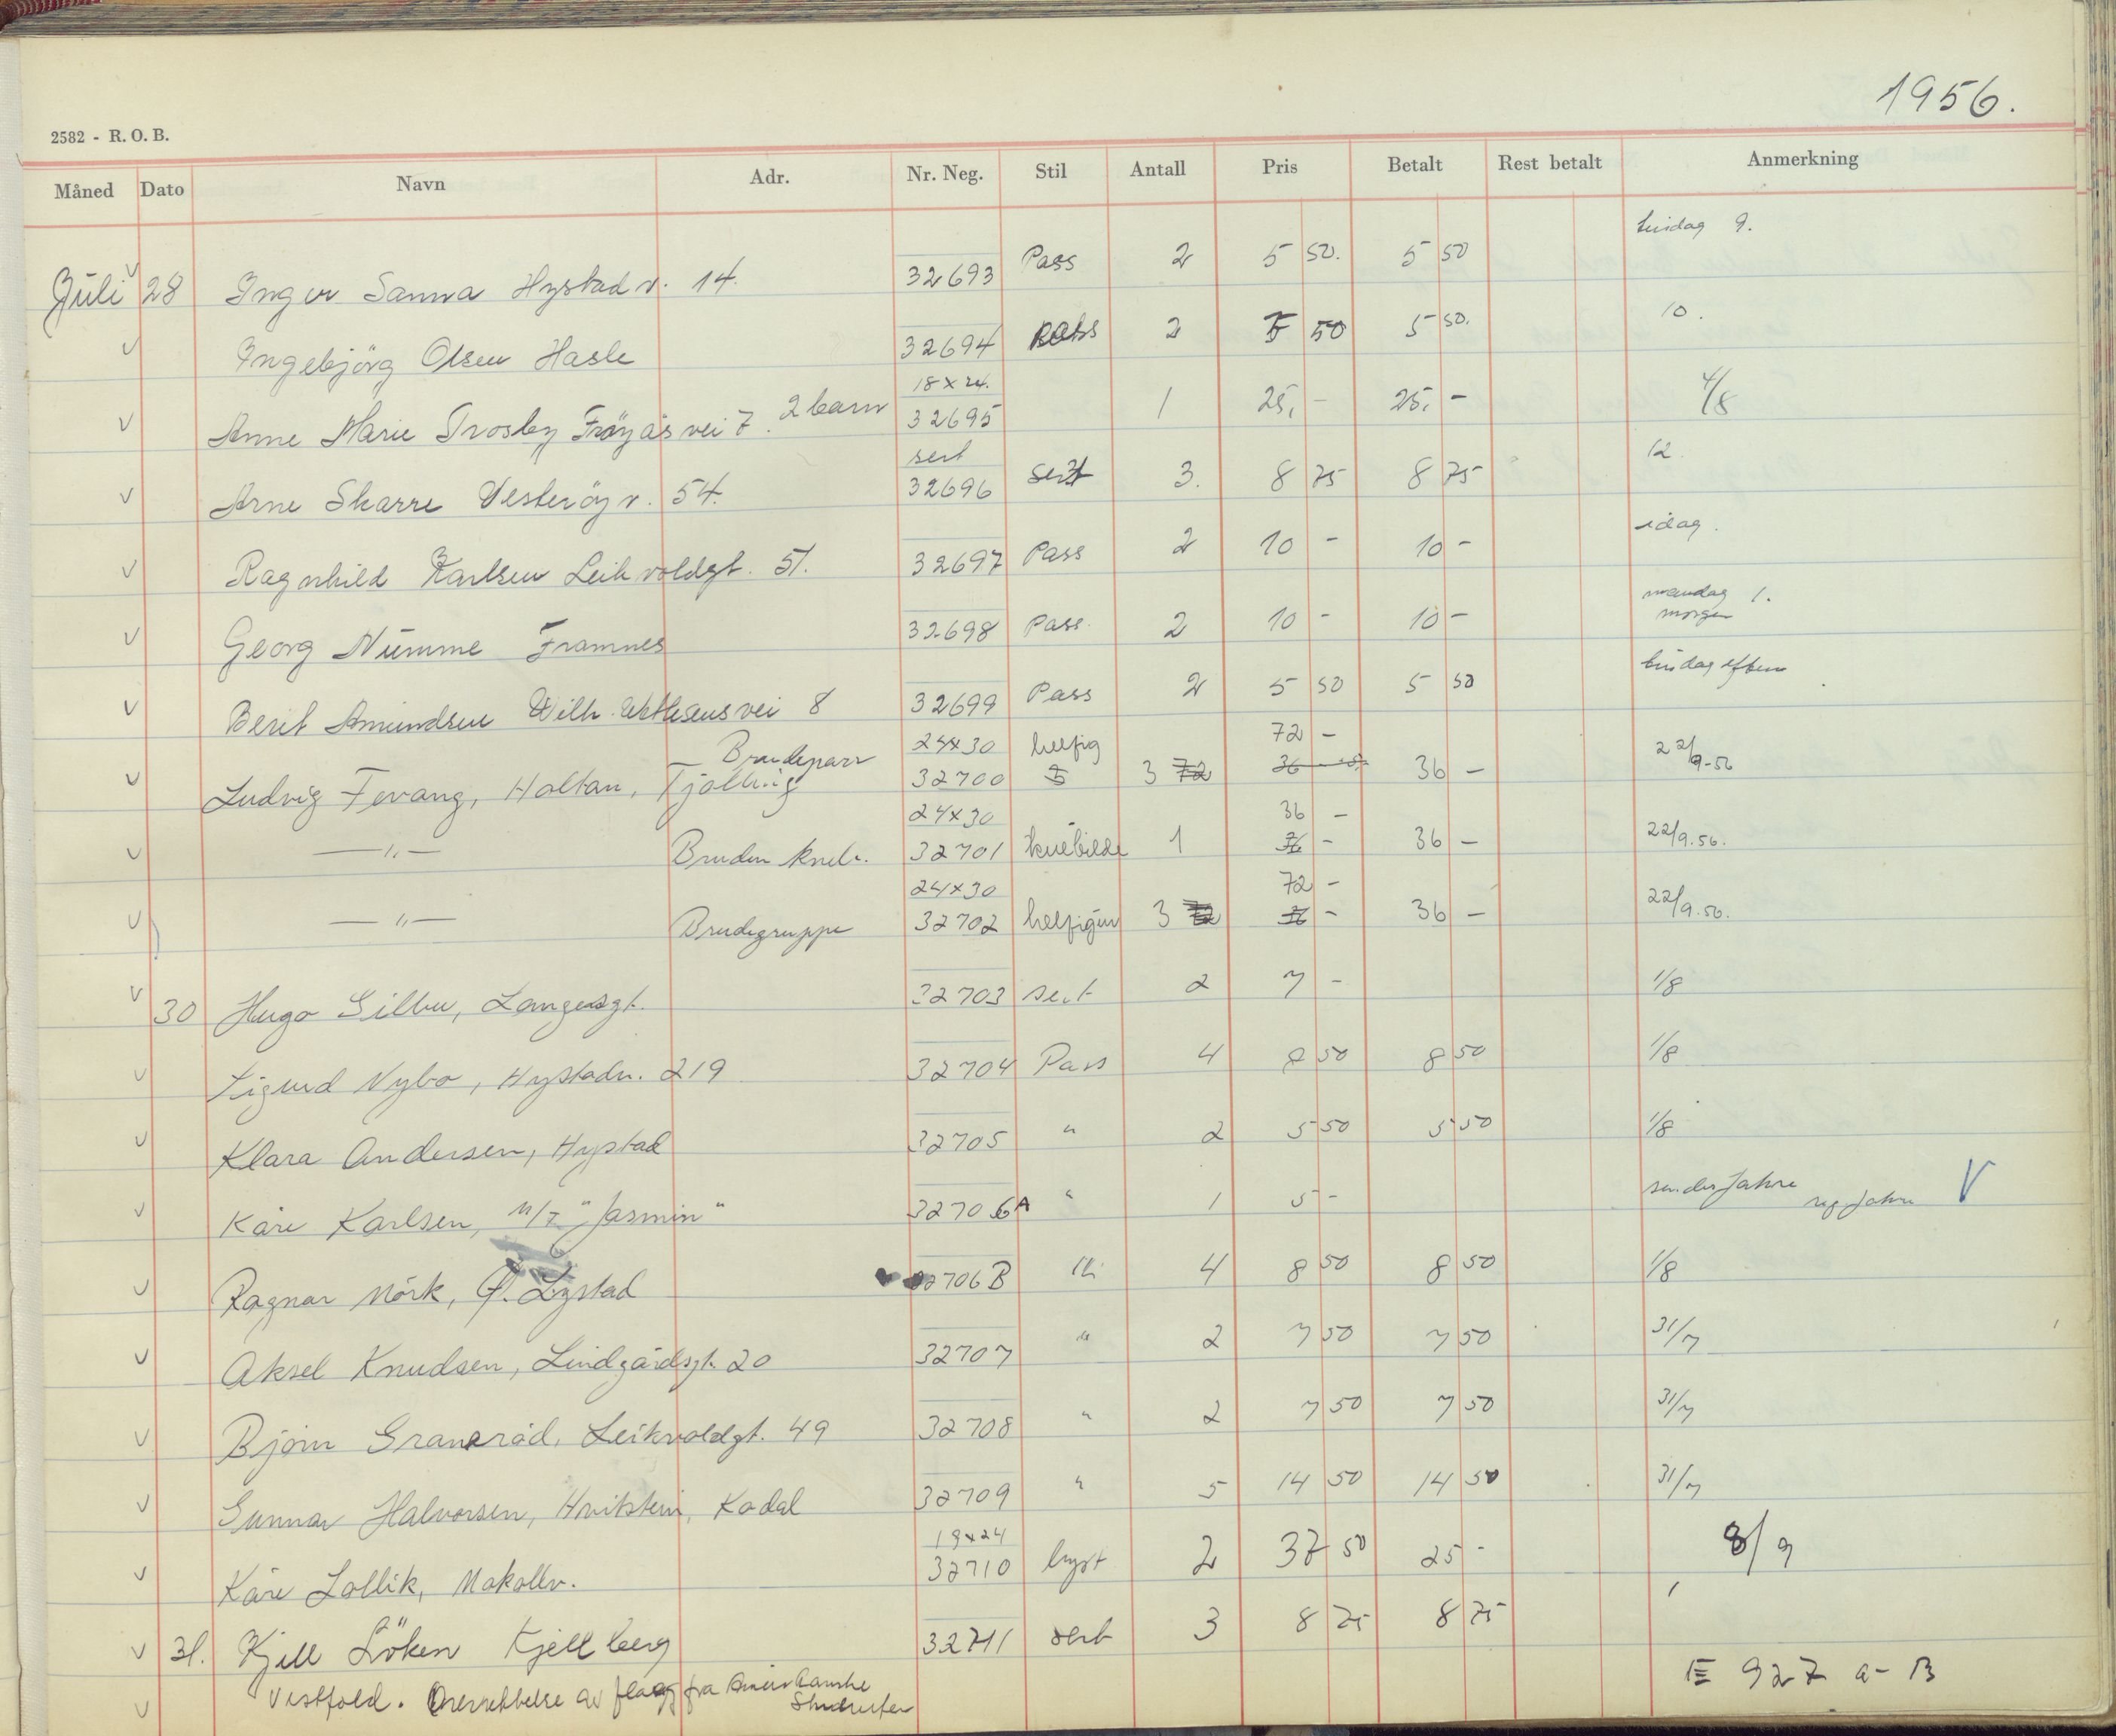 1956.
2582 - R. O. B.
Måned Dato Navn Adr. Nr. Neg. Stil Antall Pris Betalt Rest betalt Anmerkning
tirsdag 9.
Juli 28 Inger Sanna Hystad v. 14. 32693 Pass 2 5 50. 5 50
v Ingebjörg Olsen Hasle 32694 pass 2 5 50 5 50. 10.
18 x 24.
v Anne Marie Trosby Fröyås vei 7. 2 barn 32695 1 25,- 25,- 4/8
sert
v Arne Skarre Vesteröy v. 54. 32696 sert 3. 8 75 8 75 12.
v Ragnhild Karlsen Leikvoldgt. 51. 32697 Pass 2 10 - 10 - idag.
v Georg Numme Framnes 32698 Pass 2 10 - 10 - mandag 1.
morgen
v Berit Amundsen Wilh. Wettlesensvei 8 32699 Pass 2 5 50 5 50 tirsdag efterm
Brudeparr 24x30 helfig 72 -
v Ludvig Fevang, Haltan, Tjölling 32700 5 3 72 36 - 36 - 22/9-56
24x30 36 -
v —"— Bruden kneb. 32701 knebilde 1 72 - 36 - 22/9.56.
24x30 72 -
v —"— Brudegruppe 32702 helfigur 3 72 36 - 36 - 22/9.56.
v 30 Hugo Gilbu, Langesgt. 32703 sert 2 7 - 1/8
v Sigurd Nybo, Hystadv. 219 32704 Pass 4 8 50 8 50 1/8
v Klara Andersen, Hystad 32705 " 2 5 50 5 50 1/8
v Kåre Karlsen, M/T "Jasmin" 32706A " 1 5 - sender Jahre reg Jahre V
v Ragnar Mörk, Lystad 32706 B 4 8 50 8 50 1/8
v Aksel Knudsen, Lindgårdsgt. 20 32707 " 2 7 50 7 50 31/7
v Bjørn Granerød, Leikvoldgt. 49 32708 " 2 7 50 7 50 31/7
v Gunnar Halvorsen, Hvitstein, Kodal 32709 " 5 14 50 14 50 31/7
18x24
v Kåre Lollik, Mokollv. 32710 bryst 2 37 50 25 - 8/9
v 31. Kjell Löken Kjellberg 32711 sert 3 8 75 8 75
v Vestfold. Overrekkelse av flagg fra Amerikanske E 927 a - B
Studenter